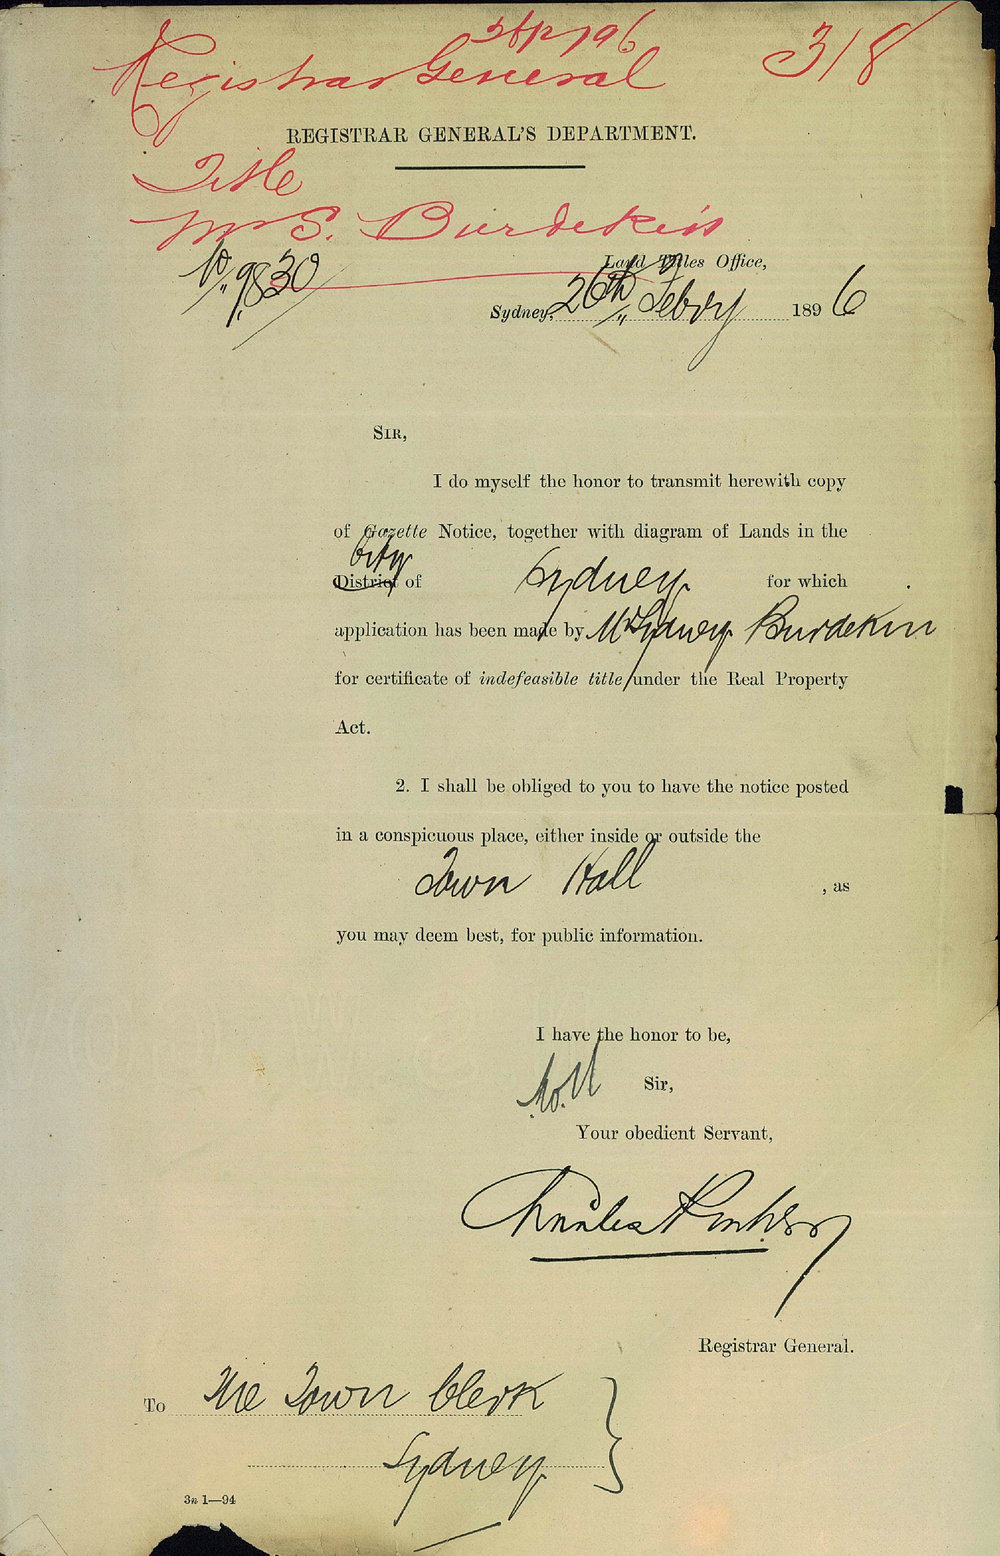 Registrar General 318
REGISTRAR GENERAL'S DEPARTMENT.
Title
Mr S. Burdekin
No. 9830
Land Titles Office,
Sydney, 26th Febry 1896
SIR,
I do myself the honor to transmit herewith copy
of Gazette Notice, together with diagram of Lands in the
City
District of Sydney for which
application has been made by Mr Sydney Burdekin
for certificate of indefeasible title under the Real Property
Act.
2. I shall be obliged to you to have the notice posted
in a conspicuous place, either inside or outside the
Town Hall , as
you may deem best, for public information.
I have the honor to be,
Sir,
Your obedient Servant,
Charles
Registrar General.
To The Town Clerk
Sydney
3n 1—94